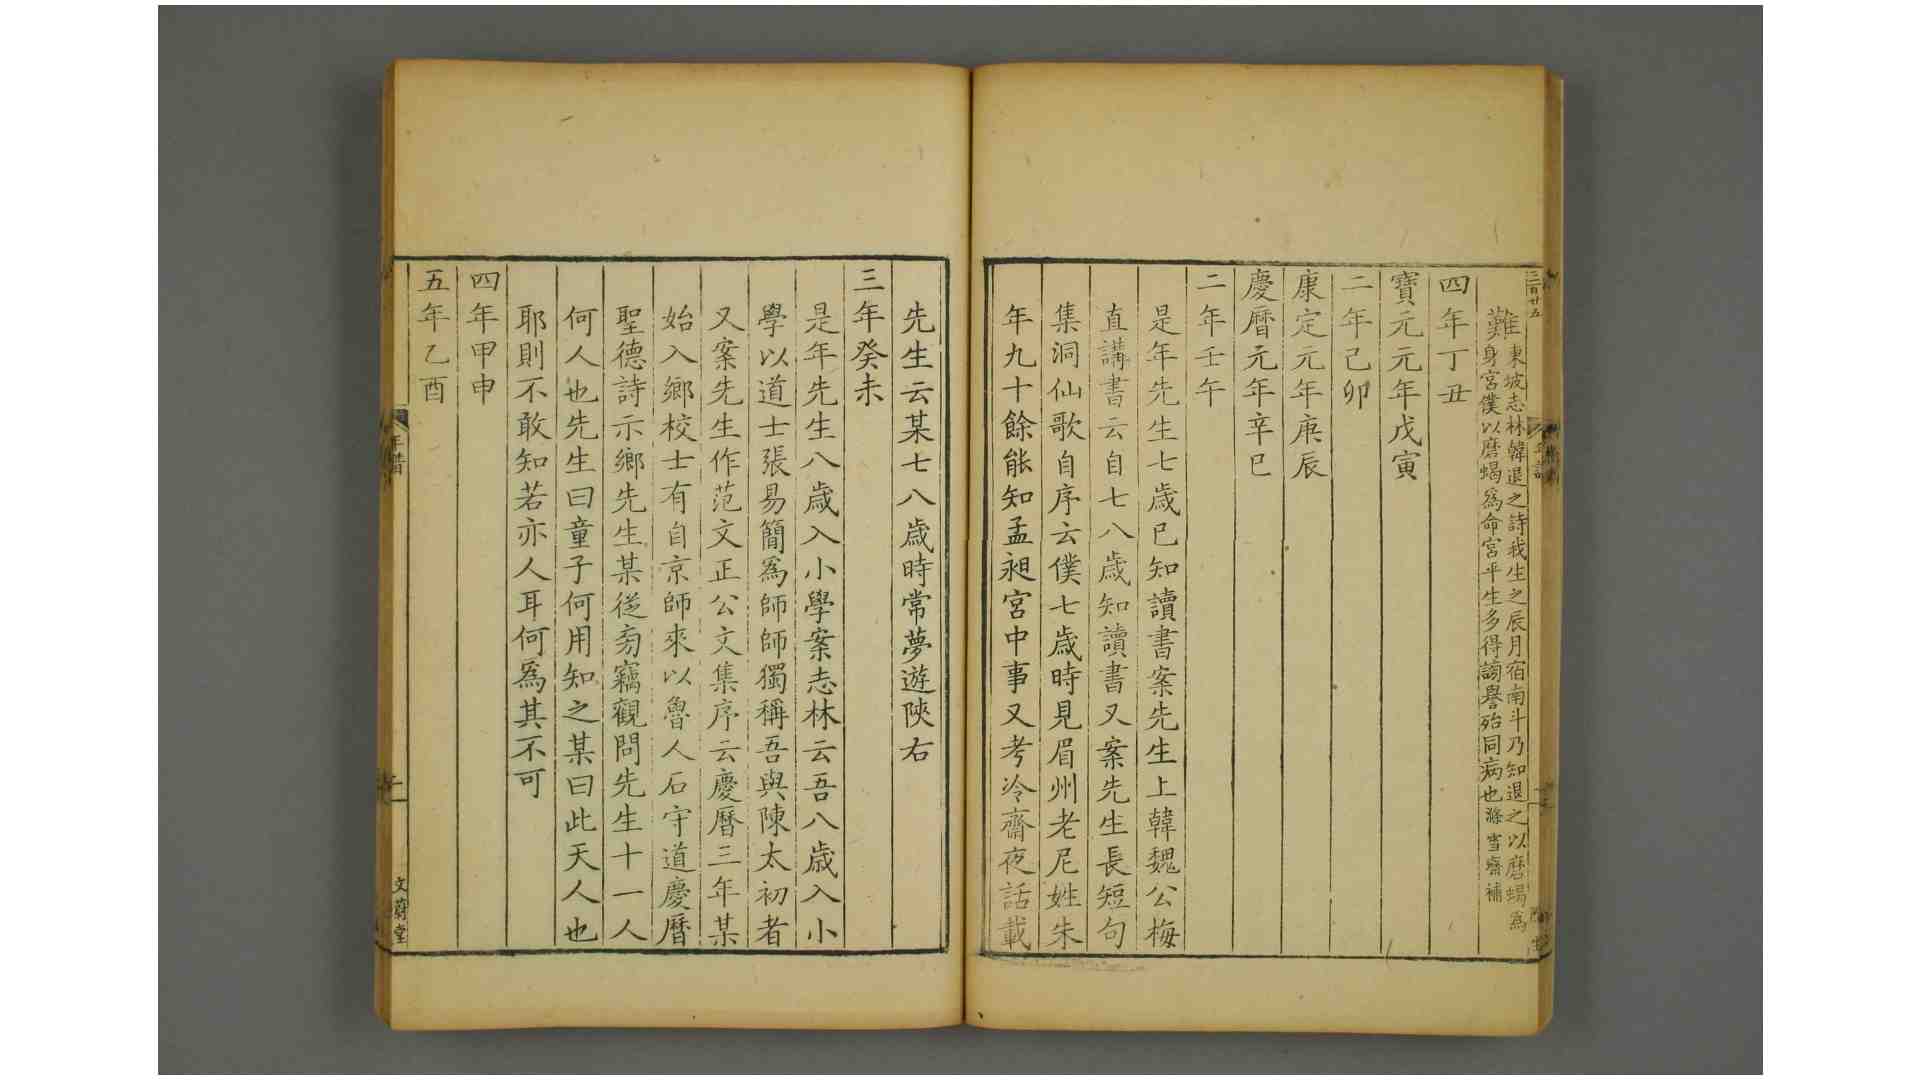 難東坡志林韓退之詩我生之辰月宿南斗乃知退之以磨蝎爲
身宮僕以磨蝎爲命宮平生多得謗譽殆同病也滌雪齋補
四年丁丑
寶元元年戊寅
二年己卯
康定元年庚辰
慶曆元年辛巳
二年壬午
是年先生七歲已知讀書案先生上韓魏公梅
直講書云自七八歲知讀書又案先生長短句
集洞仙歌自序云僕七歲時見眉州老尼姓朱
年九十餘能知孟昶宮中事又考冷齋夜話載
先生云某七八歲時常夢遊陝右
三年癸未
是年先生八歲入小學案志林云吾八歲入小
學以道士張易簡爲師師獨稱吾與陳太初者
又案先生作范文正公文集序云慶曆三年某
始入鄉校士有自京師來以魯人石守道慶曆
聖德詩示鄉先生某從旁竊觀問先生十一人
何人也先生曰童子何用知之某曰此天人也
耶則不敢知若亦人耳何爲其不可
四年甲申
五年乙酉
年譜
二
文蔚堂